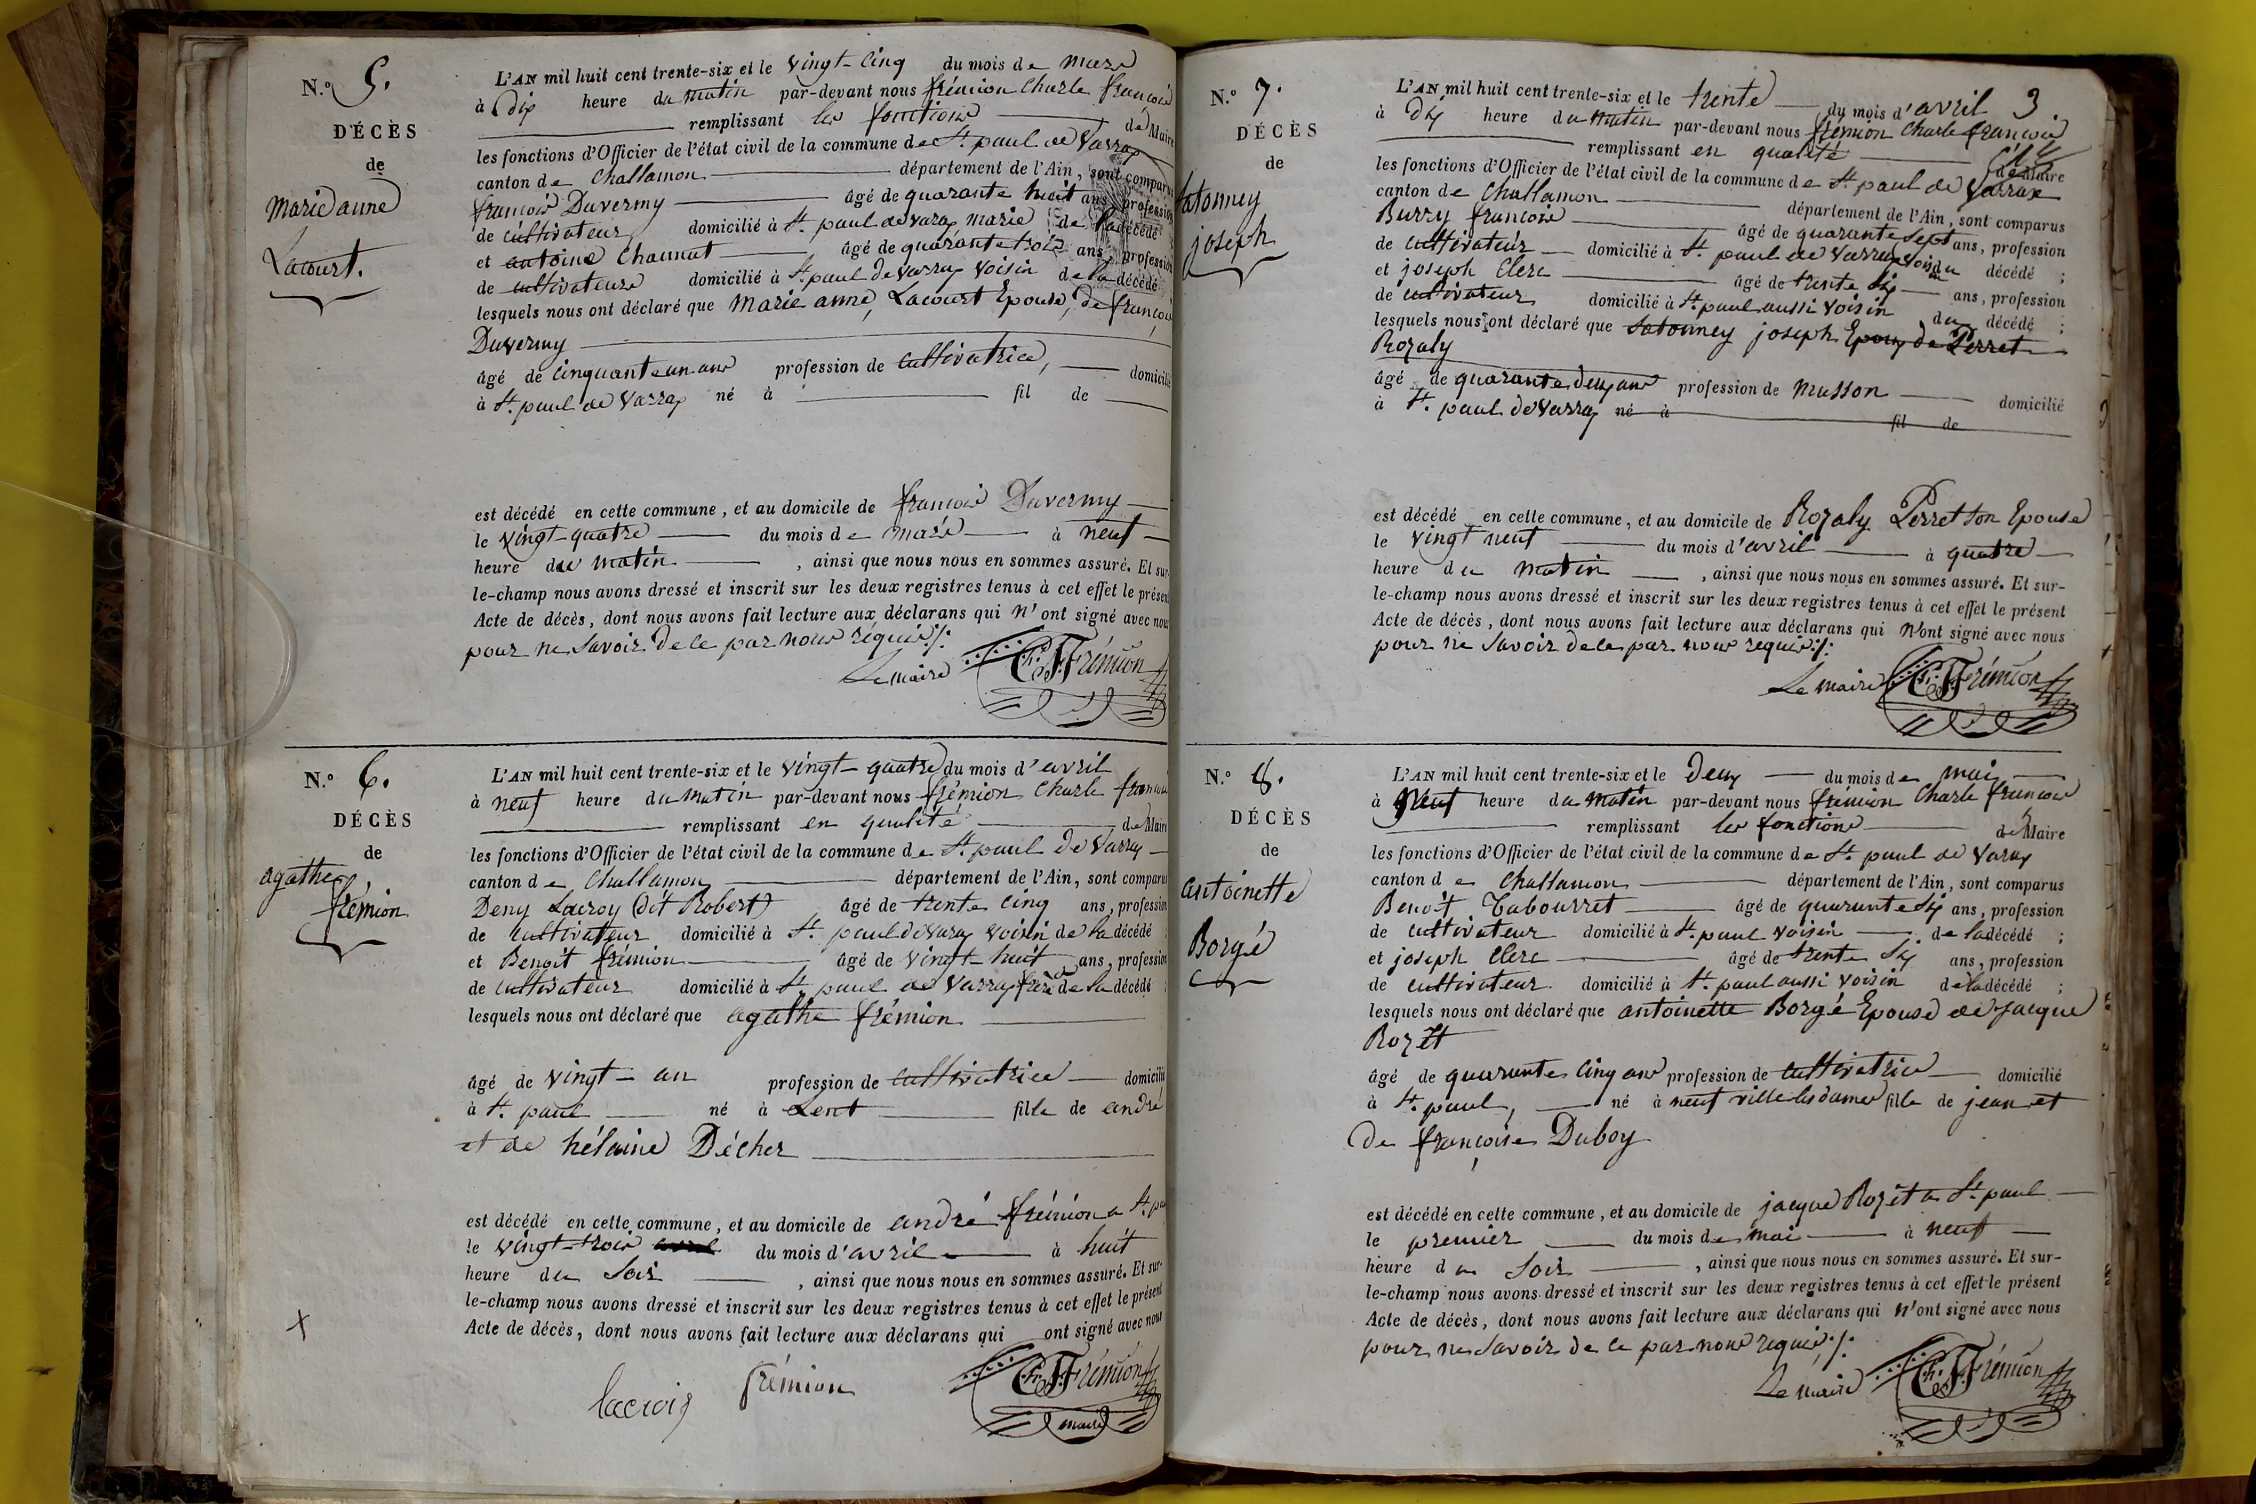 N.º 5.
DÉCÈS
de
Marie anne
Lacourt.
L'AN mil huit cent trente-six et le vingt-cinq du mois de mars
à dix heure du matin par-devant nous frémion Charle françois
remplissant les fonctions de Maire
les fonctions d'Officier de l'état civil de la commune de St. paul de Varax
canton de Challamon département de l'Ain, sont comparus
françois Duvermy âgé de quarante huit ans, profession
de cultivateur domicilié à St. paul de varax marie de la décédé
et antoine Chaunat âgé de quarante trois ans, profession
de cultivateur domicilié à St. paul de varax voisin de la décédé
lesquels nous ont déclaré que Marie anne, Lacourt Epouse, de françois
Duvermy
âgé de cinquante un ans profession de cultivatrice, domicilié
à St. paul de Varrax né à fil de
est décédé en cette commune, et au domicile de françois Duvermy
le vingt-quatre du mois de mars à neuf
heure du matin, ainsi que nous nous en sommes assuré. Et sur-
le-champ nous avons dressé et inscrit sur les deux registres tenus à cet effet le présent
Acte de décès, dont nous avons fait lecture aux déclarans qui n'ont signé avec nous
pour ne savoir de ce par nous réquis ./.
Le maire Ch. F. Frémion
N.º 6.
DÉCÈS
de
agathe
frémion
L'AN mil huit cent trente-six et le vingt-quatre du mois d'avril
à neuf heure du matin par-devant nous frémion Charle françois
remplissant en qualité de Maire
les fonctions d'Officier de l'état civil de la commune de St. paul de Varax
canton de Challamon département de l'Ain, sont comparus
Deny Lacroy (dit Robert) âgé de trente cinq ans, profession
de cultivateur domicilié à St. paul de varax voisin de la décédé
et Benoit frémion âgé de vingt-huit ans, profession
de cultivateur domicilié à St. paul de Varrax frère de la décédé
lesquels nous ont déclaré que agathe frémion
âgé de vingt-un profession de cultivatrice domicilié
à St. paul né à Lent fille de andré
et de hélaine Décher
est décédé en cette commune, et au domicile de andré frémion a St. paul
le vingt-trois du mois d'avril à huit
heure du soir, ainsi que nous nous en sommes assuré. Et sur-
le-champ nous avons dressé et inscrit sur les deux registres tenus à cet effet le présent
Acte de décès, dont nous avons fait lecture aux déclarans qui ont signé avec nous
lacroix frémion Ch. F. Frémion
maire
3.
N.º 7.
DÉCÈS
de
Satonney
joseph
L'AN mil huit cent trente-six et le trente du mois d'avril
à dix heure du matin par-devant nous frémion Charle françois
remplissant en qualité de Maire
les fonctions d'Officier de l'état civil de la commune de St. paul de Varrax
canton de Challamon département de l'Ain, sont comparus
Burry françois âgé de quarante sept ans, profession
de cultivateur domicilié à St. paul de Varrax voisin du décédé ;
et joseph Clerc âgé de trente six ans, profession
de cultivateur domicilié à St. paul aussi voisin du décédé ;
lesquels nous ont déclaré que Satonney joseph Epoux de Perret
Rozaly
âgé de quarante deux ans profession de Masson domicilié
à St. paul de Varrax né à fil de
est décédé en cette commune, et au domicile de Rozaly Perret son Epouse
le vingt neuf du mois d'avril à quatre
heure du matin, ainsi que nous nous en sommes assuré. Et sur-
le-champ nous avons dressé et inscrit sur les deux registres tenus à cet effet le présent
Acte de décès, dont nous avons fait lecture aux déclarans qui N'ont signé avec nous
pour ne savoir de ce par nous requis ./.
Le maire Ch. F. Frémion
N.º 8.
DÉCÈS
de
antoinette
Borgé
L'AN mil huit cent trente-six et le deux du mois de mai
à Neuf heure du matin par-devant nous frémion Charle françois
remplissant les fonctions de Maire
les fonctions d'Officier de l'état civil de la commune de St. paul de Varax
canton de Challamon département de l'Ain, sont comparus
Benoit Tabourret âgé de quarante six ans, profession
de cultivateur domicilié à St. paul voisin de la décédé ;
et joseph Clerc âgé de trente six ans, profession
de cultivateur domicilié à St. paul aussi voisin de la décédé ;
lesquels nous ont déclaré que antoinette Borgé Epouse de jacque
Rozet
âgé de quarante cinq ans profession de cultivatrice domicilié
à St. paul, né à neuf ville les dames fille de jean et
de françoise Duboy
est décédé en cette commune, et au domicile de jacque Rozet a St. paul
le premier du mois de mai à neuf
heure du soir, ainsi que nous nous en sommes assuré. Et sur-
le-champ nous avons dressé et inscrit sur les deux registres tenus à cet effet le présent
Acte de décès, dont nous avons fait lecture aux déclarans qui n'ont signé avec nous
pour ne savoir de ce par nous requis ./.
Le maire Ch. F. Frémion